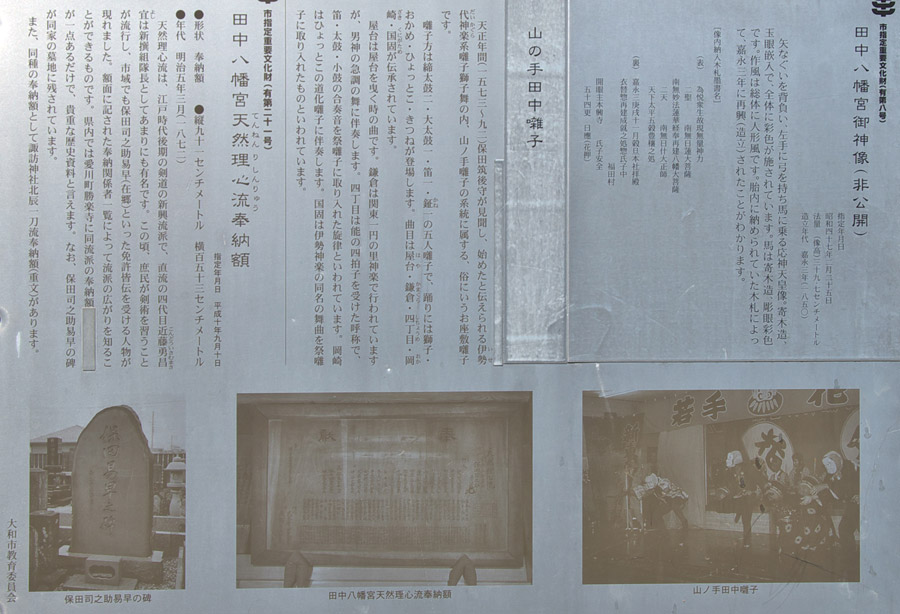 市指定重要文化財(有第八号)
田中八幡宮御神像(非公開)
指定年月日
昭和四十七年二月二十五日
法量 (像高)三十九・七センチメートル
造立年代 嘉永三年(一八五〇)
矢なぐいを背負い、左手に弓を持ち馬に乗る応神天皇像。寄木造、
玉眼嵌入で全体に彩色が施されています。馬は寄木造、彫眼彩色
です。作風は総体に人形風です。胎内に納められていた木札によっ
て、嘉永三年に再興(造立)されたことがわかります。
[像内納入木札墨書名]
(表) 為慈衆生故現無量神力
南無日蓮大菩薩
南無妙法蓮華経奉再建八幡大菩薩
二天 南無日十大正師
天下太平五穀豊穣之処
(裏) 嘉永三庚戌十一月穀日本社拝殿
衣替惣再建成就之処惣氏子中
福田村
開眼主本興寺 氏子安全
五十四更 日運(花押)
山の手田中囃子
天正年間(一五七三〜九二)保田筑後守が見聞し、始めたと伝えられる伊勢
代神楽系囃子獅子舞の内、山ノ手囃子の系統に属する、俗にいうお座敷囃子
です。
囃子方は締太鼓二・大太鼓一・笛一・鎌一の五人囃子で、踊りには獅子・
おかめ・ひょっとこ・きつねが登場します。曲目は屋台・鎌倉・四丁目・岡
崎・国固が伝承されています。
屋台は屋台を曳く時の曲です。鎌倉は関東一円の里神楽で行われています
が、男神の急調の舞に伴奏します。四丁目は能の四拍子を受けた呼称で、
笛・太鼓・小鼓の合奏音を祭囃子に取り入れた旋律といわれています。岡崎
はひょっとこの道化囃子に伴奏します。国固は伊勢神楽の同名の舞曲を祭囃
子に取り入れたものといわれています。
市指定重要文化財(有第二十一号)
田中八幡宮天然理心流奉納額
てんねんりしんりゅう
指定年月日 平成十年九月十日
●形状 奉納額 ●縦九十一センチメートル 横百五十三センチメートル
●年代 明治五年三月(一八七二)
天然理心流は、江戸時代後期の剣道の新興流派で、直流の四代目近藤勇昌
宜は新撰組隊長としてあまりにも有名です。この頃、庶民が剣術を習うこと
が流行し、市域でも保田司之助易早(在郷)といった免許皆伝を受ける人物が
現れました。額面に記された奉納関係者一覧によって流派の広がりを知るこ
とができるものです。県内では愛川町勝楽寺に同流派の奉納額
が一点あるだけで、貴重な歴史資料と言えます。なお、保田司之助易早の碑
が同家の墓地に残されています。
また、同種の奉納額として諏訪神社北辰一刀流奉納額(重文)があります。
山ノ手田中囃子
田中八幡宮天然理心流奉納額
保田司之助易早の碑
大和市教育委員会